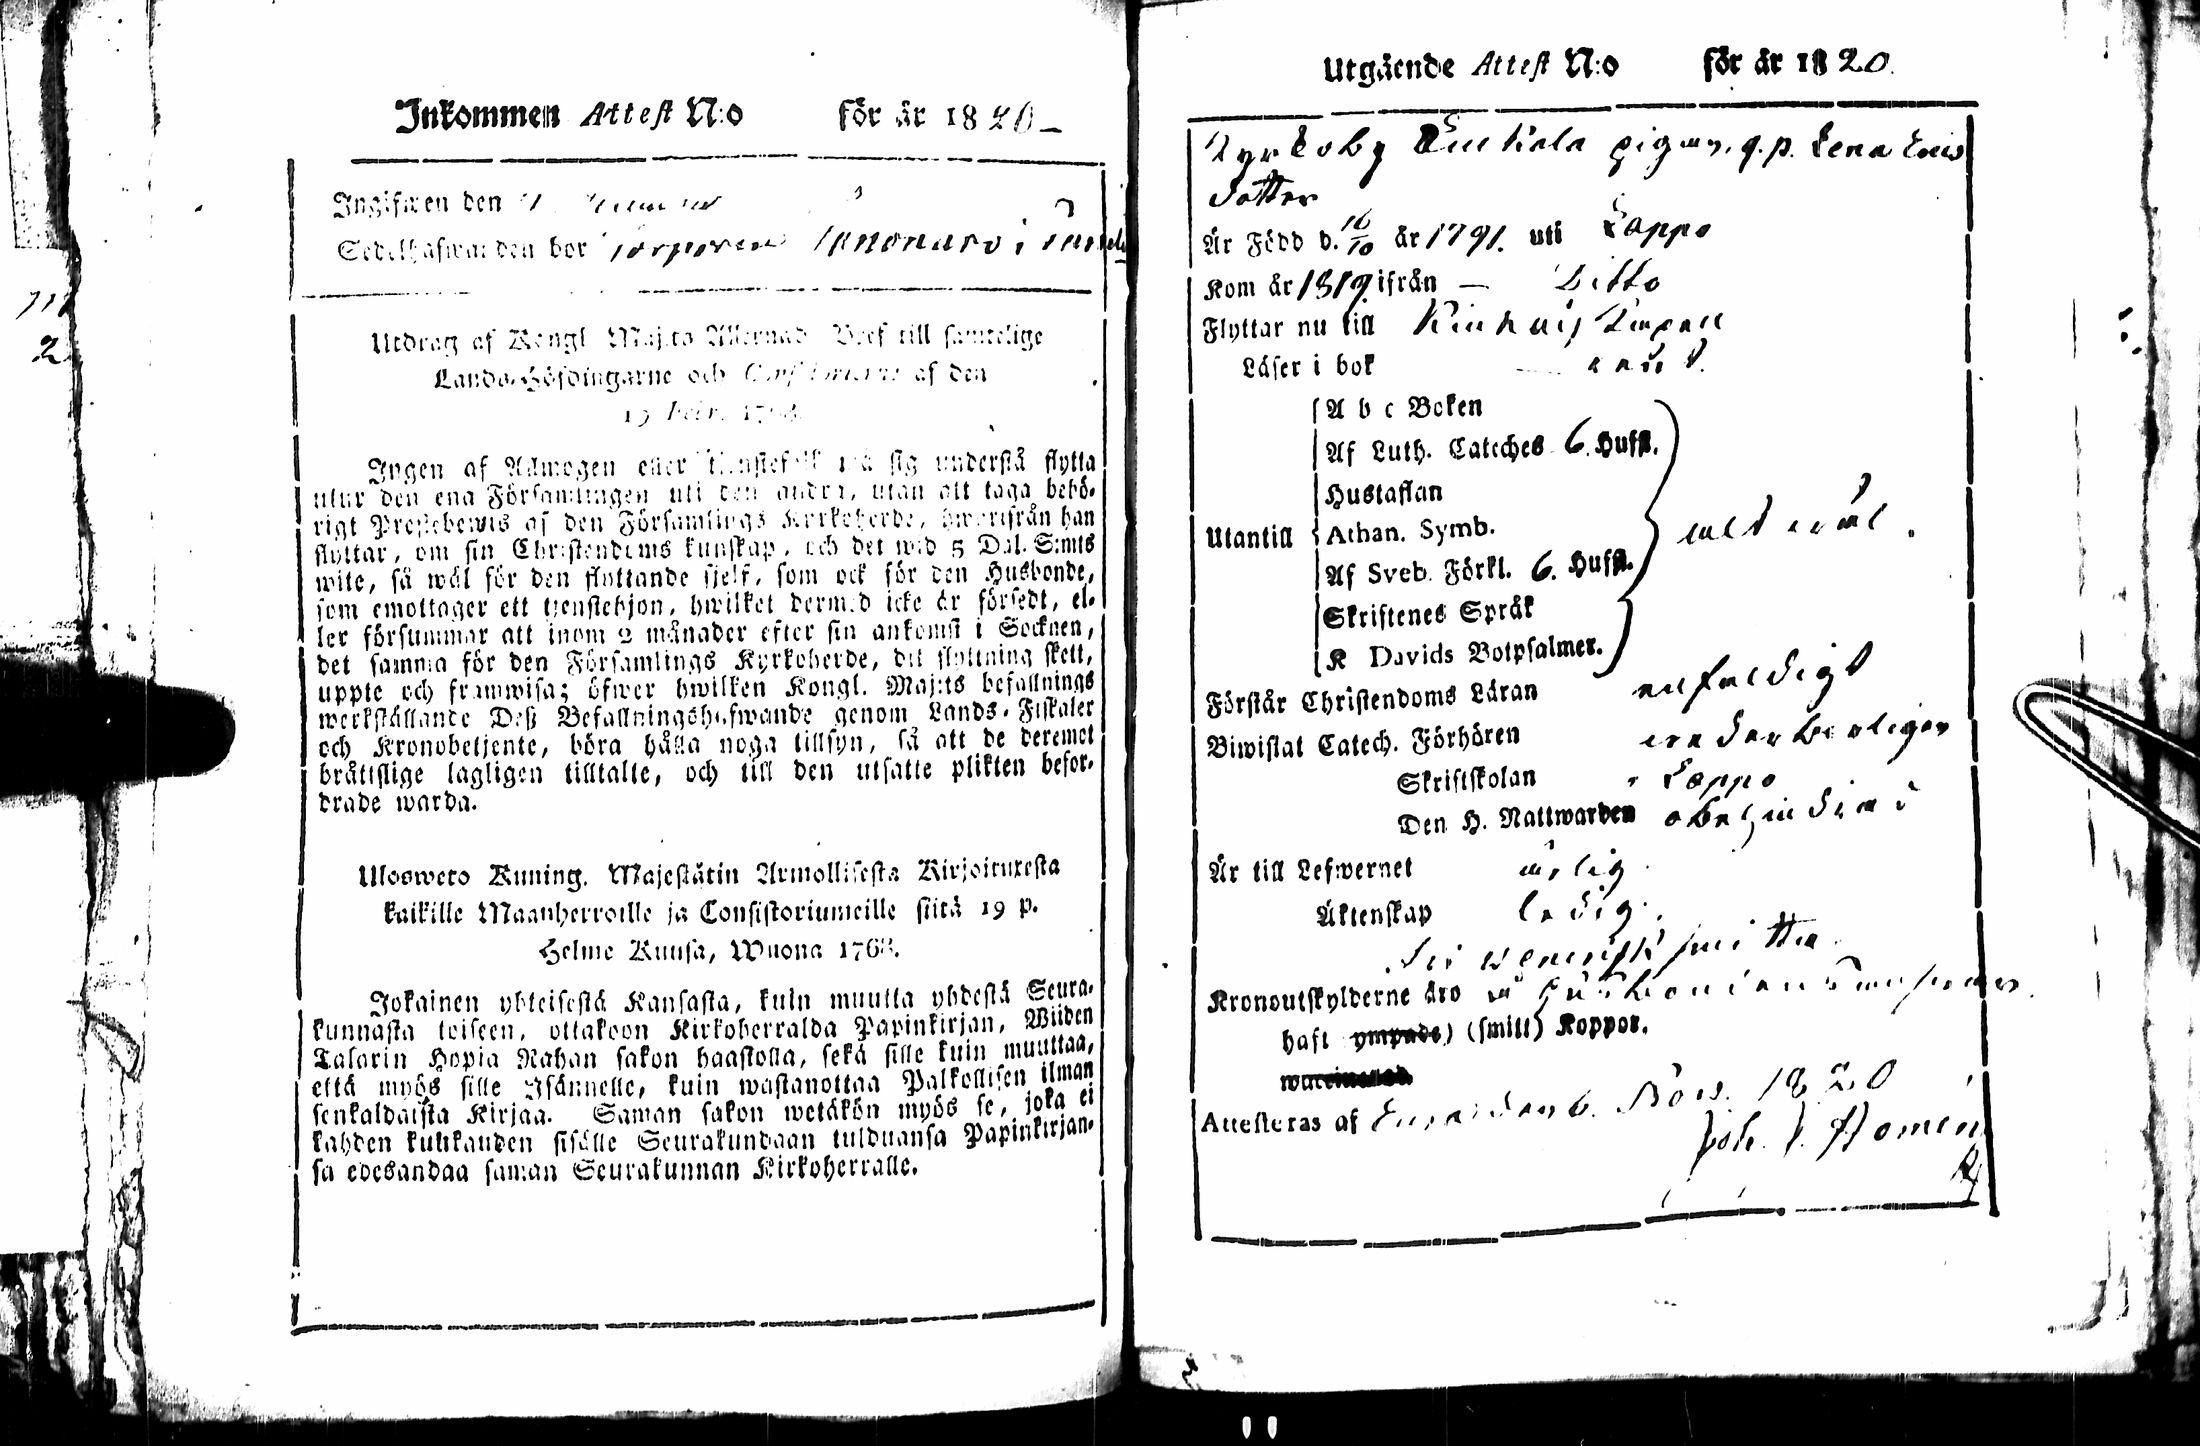 Inkommen Attest N:o för år 1820
Ingifwen den
Sedelhafwanden bor Torparen i
Utdrag af Kongl Maj:ts Allernåd Bref till samtelige
Lands-Höfdingarne och Consistorierne af den
19 Febr. 1768.
Ingen af Allmogen eller tienstefolk må sig understå flytta
utur den ena Församlingen uti den andra, utan att taga behö-
rigt Prestebewis af den Församlings Kyrkoherde, hworifrån han
flyttar, om sin Christendoms kunskap, och det wid 5 Dal. S:mts
wite, så wäl för den flyttande sjelf, som ock för den Husbonde,
som emottager ett tjenstehjon, hwilket dermed icke är försedt, el-
ler försummar att inom 2 månader efter sin ankomst i Socknen,
det samma för den Församlings Kyrkoherde, dit flyttning skett,
uppte och framwisa; öfwer hwilken Kongl. Maj:ts befallnings
werkställande Deß Befallningshafwande genom Lands-Fiskaler
och Kronobetjente, böra hålla noga tillsyn, så att de deremot
bråttslige lagligen tilltalte, och till den utsatte plikten befor-
drade warda.
Uloswero Kuning. Majestätin Armollisesta Kirjoituxesta
kaikille Maanherroille ja Consistoriumeille siitä 19 p.
Helme Kuusa, Wuona 1768.
Jokainen yhteisestä Kansasta, kuin muutta yhdestä Seura-
kunnasta toiseen, ottakoon Kirkoherralda Papinkirjan, Wiiden
Talarin Hopia Rahan sakon haastolla, sekä sille kuin muuttaa,
että myös sille Isännelle, kuin wastanottaa Palkollisen ilman
senkaldaista Kirjaa. Saman sakon wetäkön myös se, joka ei
kahden kuukauden sisälle Seurakundaan tulduansa Papinkirjan-
sa edesandaa saman Seurakunnan Kirkoherralle.
Utgående Attest N:o för år 1820.
Kyrkoby pigan, q.p. Lena Eris
dotter
Är Född d. 16/10 år 1791. uti Lappo
Kom år 1819 ifrån — Ditto
Flyttar nu till Capell
Läser i bok
A b c Boken
Af Luth. Cateches 6. Hufst.
Hustaflan
Utantill Athan. Symb.
Af Sveb. Förkl. 6. Hufst.
Skriftenes Språk
K Davids Botpsalmer.
Förstår Christendoms Läran enfaldigt
Biwistat Catech. Förhören wederbörligen
Skriftskolan i Lappo
Den H. Nattwarden obehindrad
Är till Lefwernet ärlig
Äktenskap ledig.
Kronoutskylderne äro
haft (smitt) Koppor.
Attesteras af den 6. Nov. 1820
Joh. Homen